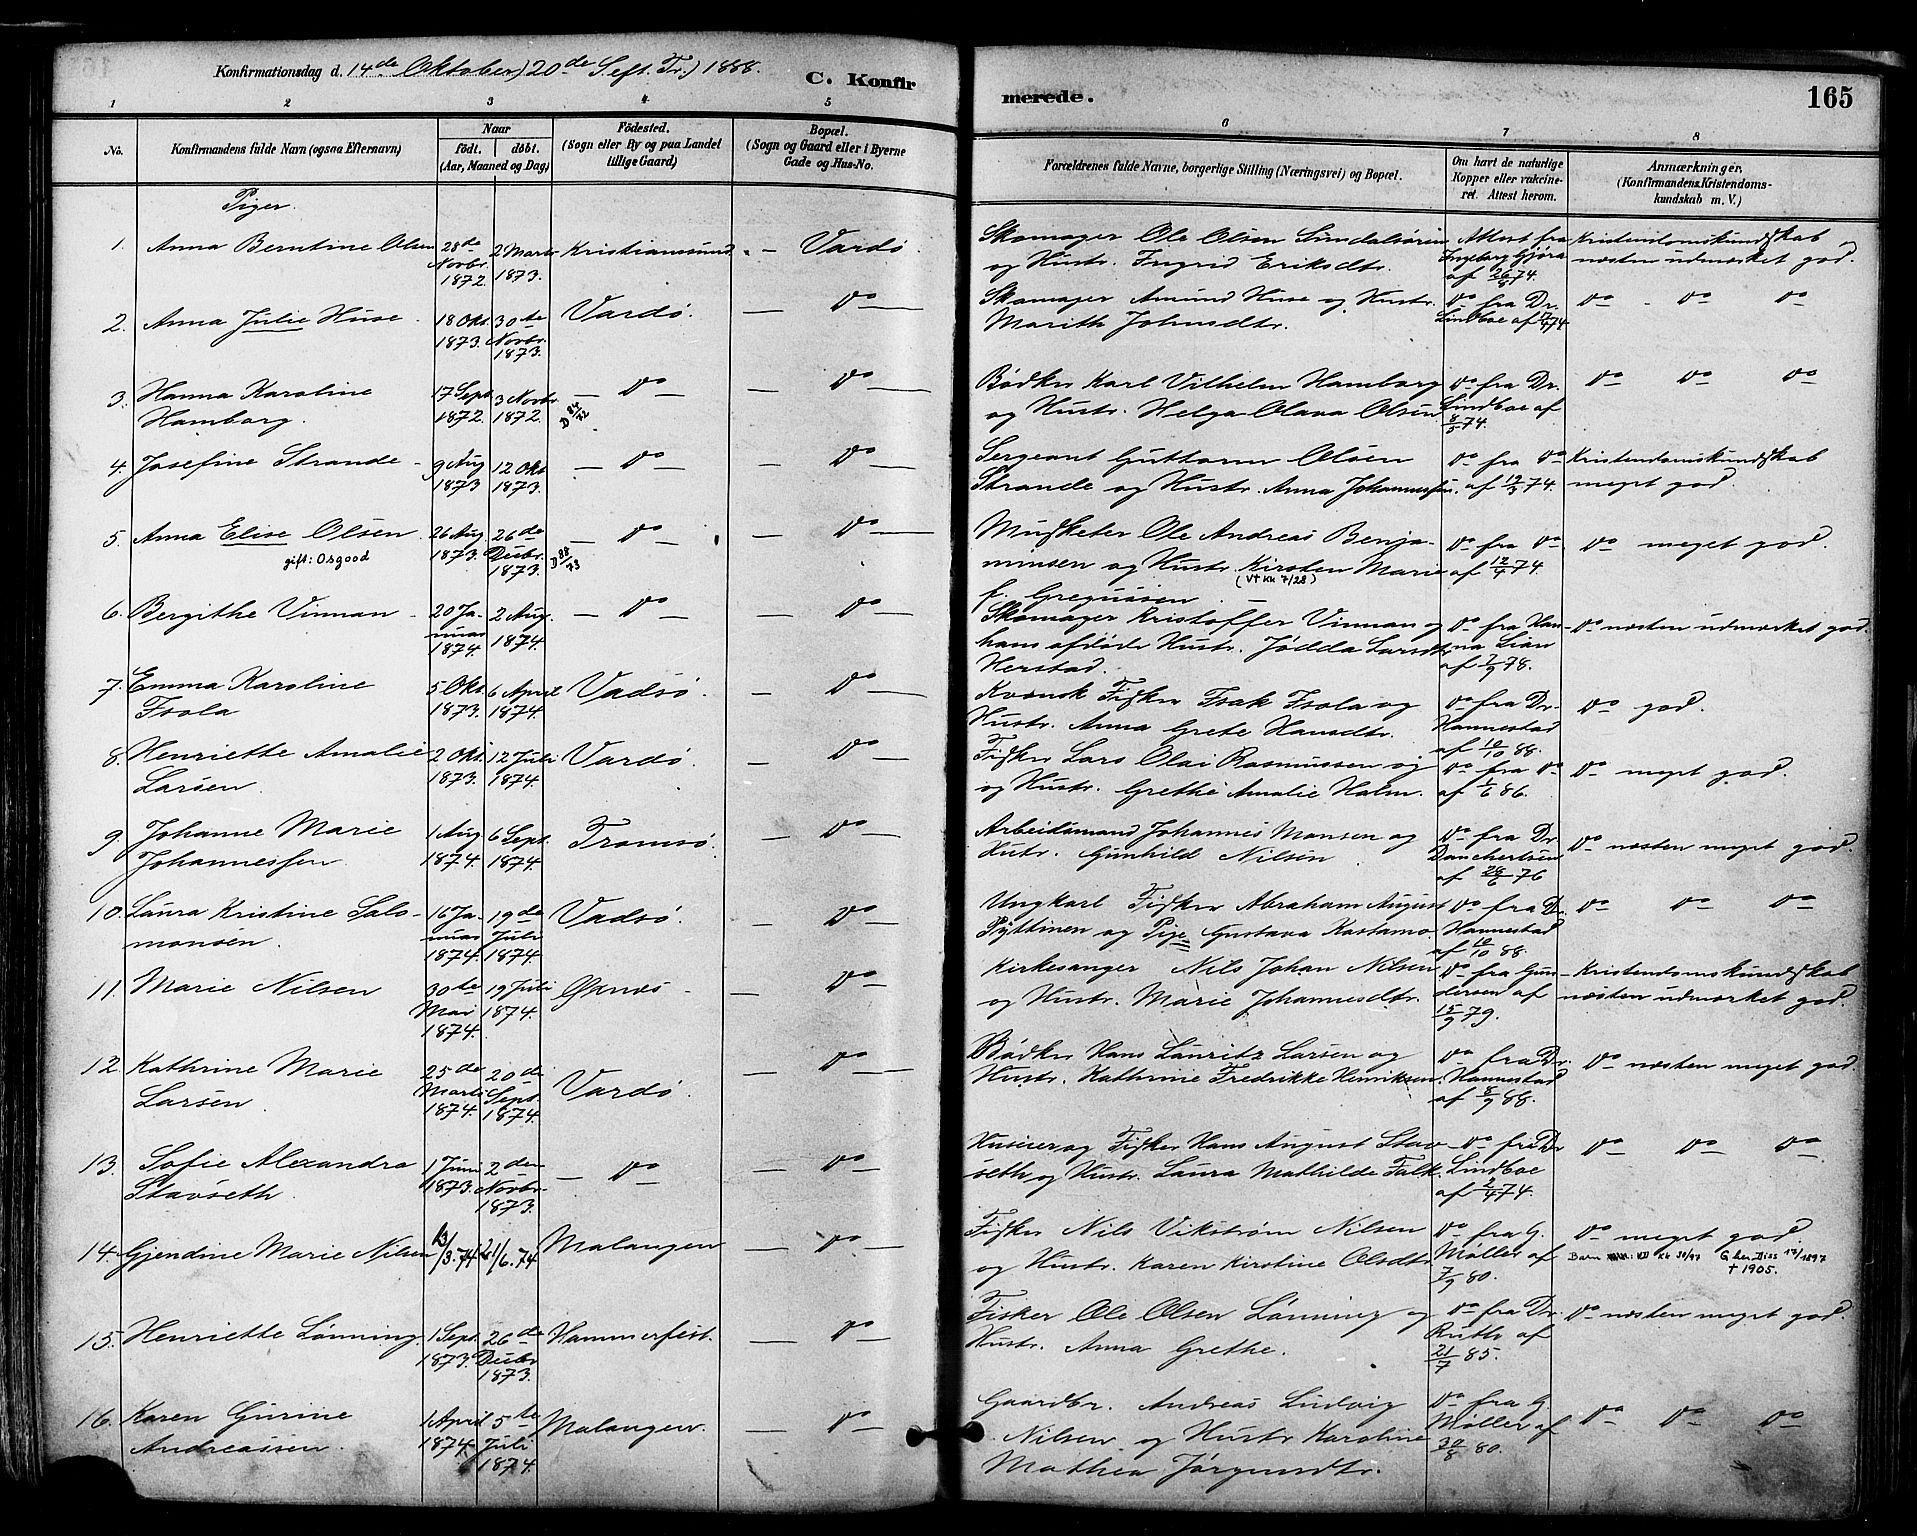 Konfirmationsdag d. 14de Oktober 20de S. eft. Tr.) 1888.
C. Konfir
merede.
165
1 2 3 4 5
6 7 8
No.
Konfirmandens fulde Navn (ogsaa Efternavn)
Naar
födt. döbt.
(Aar, Maaned og Dag)
Födested.
(Sogn eller By og paa Landet
tillige Gaard)
Bopæl.
(Sogn og Gaard eller i Byerne
Gade og Hus-No.
Forældrenes fulde Navne, borgerlige Stilling (Næringsvei) og Bopæl.
Om havt de naturlige
Kopper eller vakcine-
ret. Attest herom.
Anmærkninger.
(Konfirmandens Kristendoms-
kundskab m. V.)
Piger.
1. Anna Berntine Olsen 28de Novbr. 1872. 2 Marts 1873. Kristiansund. — Vardø.
Skomager Ole Olsen Sundalsören
og Hustr. Ingrid Eriksdtr.
Attest fra
Ingeborg Gjøra
af 26/8 74.
Kristendomskundskab
næsten udmærket god.
2. Anna Julie Huse. 18 Okt. 1873. 30te Novbr. 1873. Vardø. — Do —
Skomager Amund Huse og Hustr.
Marith Johnsdtr.
Do fra Dr.
Lindboe af 74.
Do Do Do
3. Hanna Karoline
Hamborg. 17 Sept. 1872. 3 Novbr. 1872. — Do — — Do —
Bødker Karl Vilhelm Hamborg
og Hustr. Helga Olava Olsen.
Do fra Dr.
Lindboe af
8/5 74.
Do Do Do
4. Josefine Strande 9 Aug 1873 12 Okt 1873. — Do — — Do —
Sergeant Guttorm Olsen
Strande og Hustr. Anna Johannessen.
Do fra Do
af 19/3 74.
Kristendomskundskab
meget god.
5. Anna Elise Olsen
gift: Osgood
26 Aug 1873. 26de Decbr. 1873. D 88/73 — Do — — Do —
Musketer Ole Andreas Benja-
minsen og Hustr. Kirsten Marie
f. Gregussen
Do fra Do
af 12/4 74.
Do meget god.
6. Bergithe Vinnan 20 Ja-
nuar 1874. 2 Aug. 1874. — Do — — Do —
Skomager Kristoffer Vinnan og
hans afdøde Hustr. Jødda Larsdtr
Herstad.
Do fra Han-
na Lian
af 7/9 78.
Do næsten udmærket god.
7. Emma Karoline
Isola 5 Okt. 1873. 6 April 1874. Vadsø. — Do —
Kvænsk Fisker Isak Isola og
Hustr. Anna Grete Hansdtr.
Do fra Dr.
Hannestad
af 10/10 88.
Do god.
8. Henriette Amalie
Larsen. 2 Okt. 1873. 12 Juli 1874. Vardø. — Do —
Fisker Lars Olai Rasmussen og
og Hustr. Grethe Amalie Holm.
Do fra Do
af 1/6 86.
Do meget god.
9. Johanne Marie
Johannessen. 1 Aug 1874. 6 Sept. 1874. Tromsø. — Do —
Arbeidsmand Johannes Monsen og
Hustr. Gunhild Nilsen.
Do fra Dr
Danchertsen
af 28/6 76
Do næsten meget god.
10. Laura Kristine Salo-
monsen. 16 Ja-
nuar 1874. 19de Juli 1874. Vadsø. — Do —
Ungkarl Fisker Abraham August
Pyttinen og Pige Gustava Kastamo.
Do fra Dr.
Hannestad
af 10/10 88.
Do Do Do
11. Marie Nilsen 30de Mai 1874. 19 Juli 1874. — Do —
Kirkesanger Nils Johan Nilsen
og Hustr. Marie Johannesdtr.
Do fra Gun-
dersen af
15/9 79.
Kristendomskundskab
næsten udmærket god.
12. Kathrine Marie
Larsen. 25de Marts 1874. 20de Sept. 1874. Vardø. — Do —
Bødker Hans Lauritz Larsen og
Hustr. Kathrine Fredrikke Henriksen.
Do fra Dr.
Hannestad
af 8/9 88.
Do næsten meget god.
13. Sofie Alexandra
Stavseth. 1 Juni 1873. 2den Novbr. 1873. — Do — — Do —
Huseier og Fisker Hans August Stav-
seth og Hustr. Laura Mathilde Falk.
Do fra Dr
Lindboe
af 2/4 74.
Do Do Do
14. Gjendine Marie Nilsen /3.74 21/6.74 Malangen — Do —
Fisker Nils Vikstrøm Nilsen
og Hustr. Karen Kirstine Olsdtr.
Do fra G.
Møller af
7/9 80.
Do meget god.
† 1905.
15. Henriette Lønning. 1 Sept. 1873. 26de Decbr 1873. Hammerfest. — Do —
Fisker Ole Olsen Lønning og
Hustr. Anna Grethe.
Do fra Dr.
Ruth af
21/7 85.
Do næsten meget god.
16. Karen Gurine
Andreassen. 1 April 1874. 5te Juli 1874. Malangen. — Do —
Gaardbr. Andreas Ludvig
Nilsen og Hustr Karoline
Mathea Jørgensdtr.
Do fra G.
Møller af
30/8 80.
Do Do Do